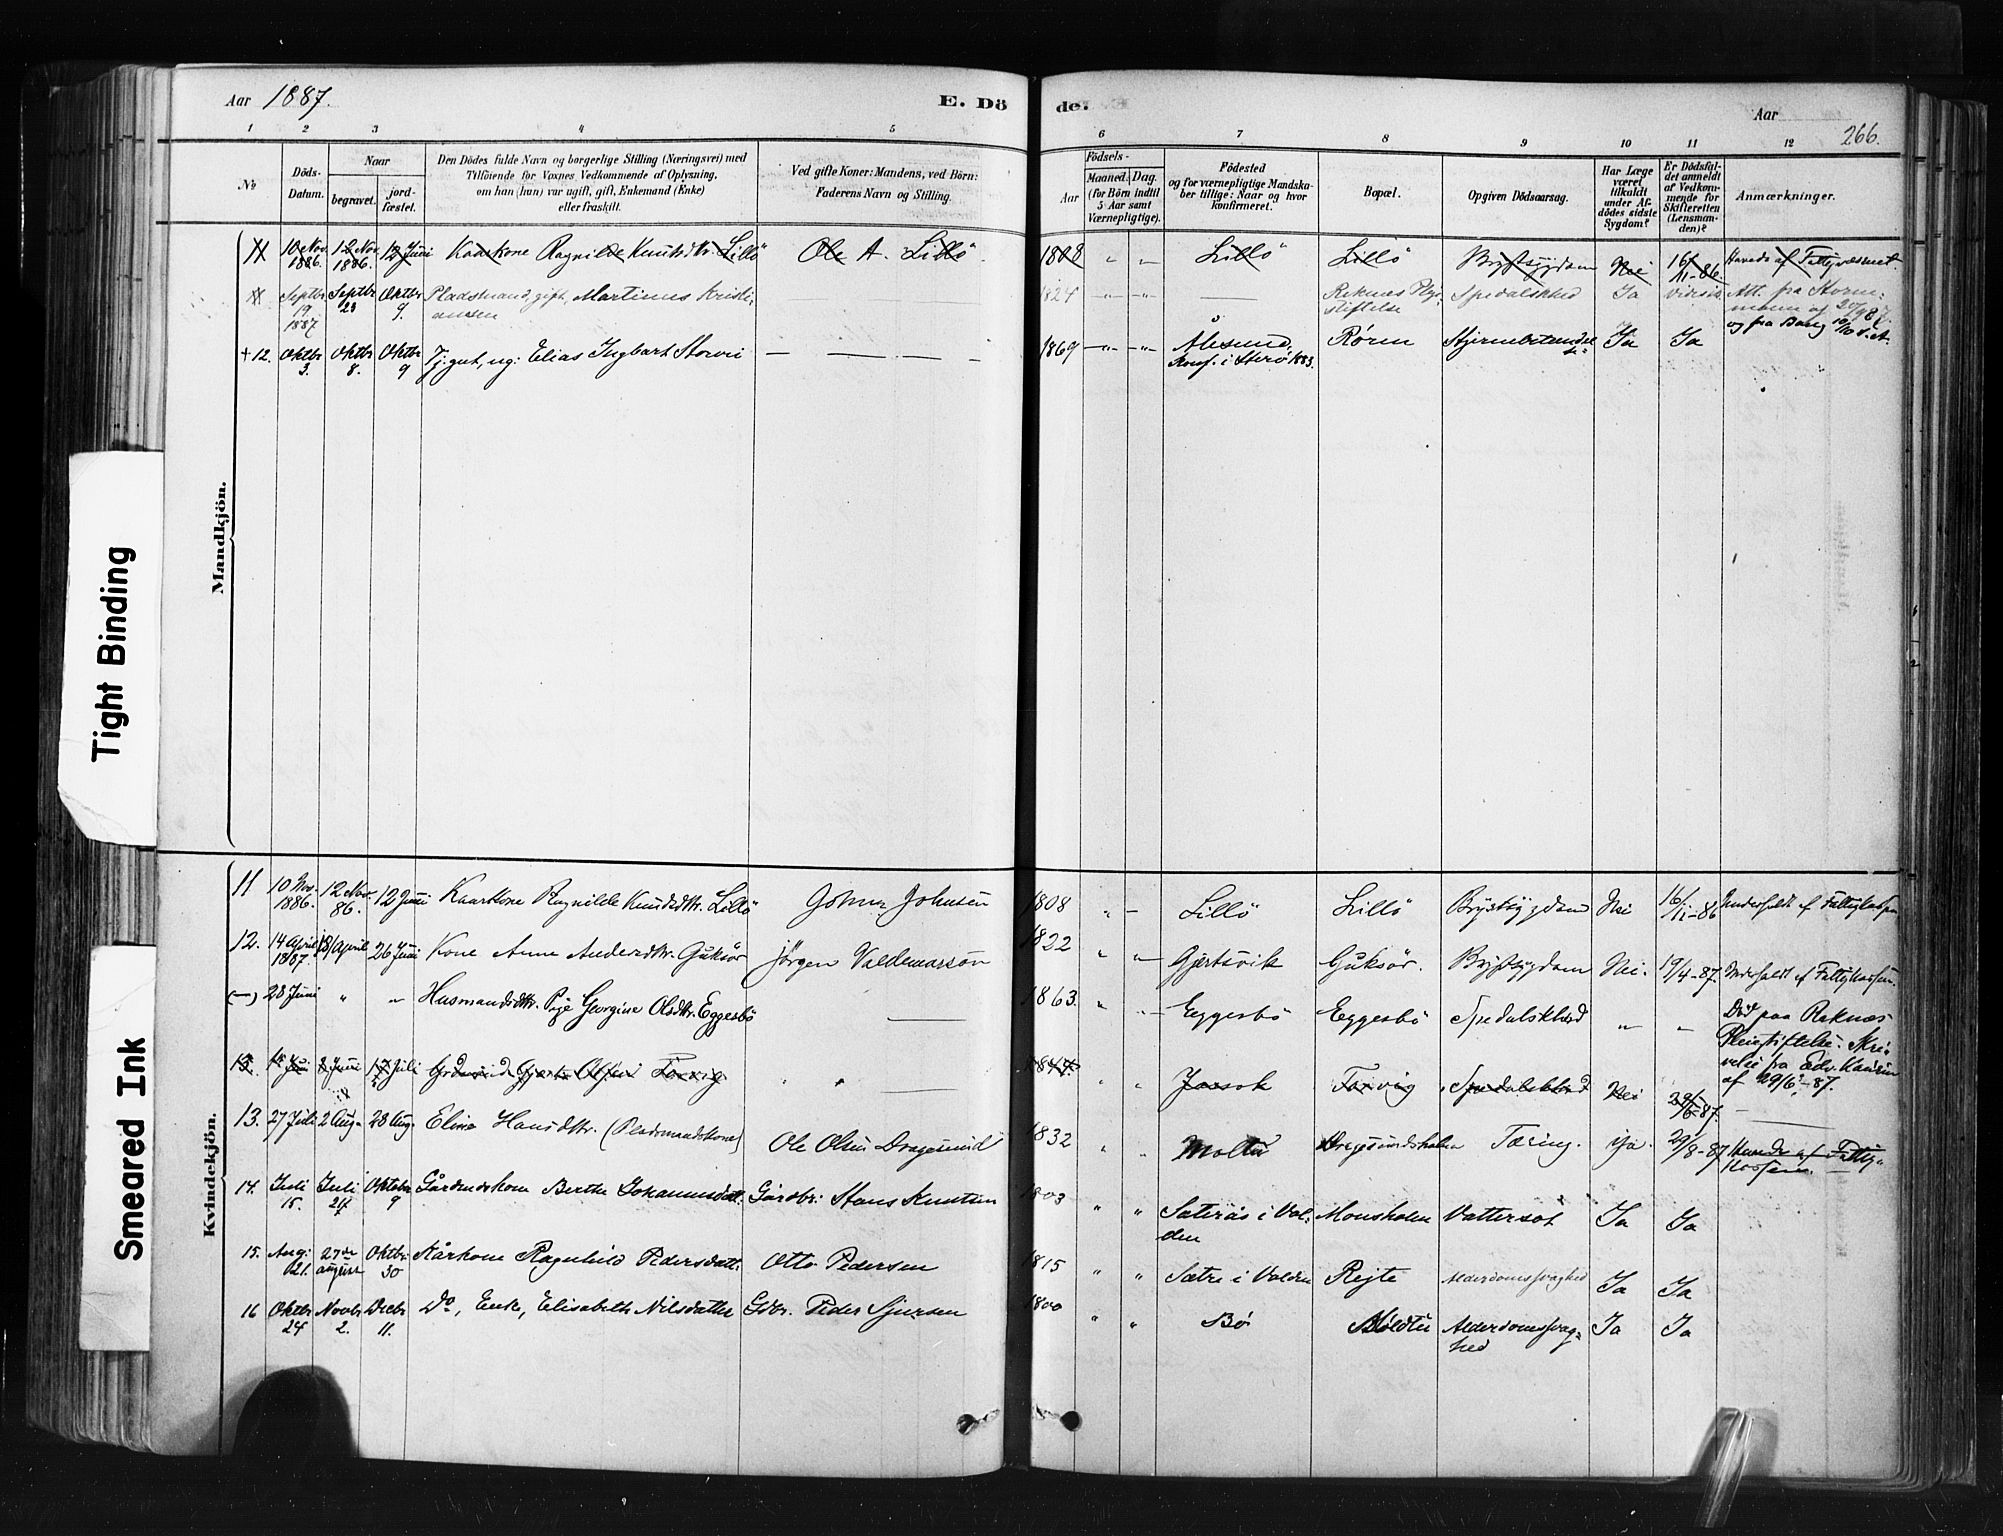 Aar 1887. E. Dö de. Aar 266.
1 2 3 4 5 6 7 8 9 10 11 12
No
Döds-Datum.
Naar
begravet.
jord-fæstet.
Den Dödes fulde Navn og borgerlige Stilling (Næringsvei) med
Tilföiende for Voxnes Vedkommende af Oplysning,
om han (hun) var ugift, gift, Enkemand (Enke)
eller fraskilt.
Ved gifte Koner: Mandens, ved Börn:
Faderens Navn og Stilling.
Födsels-
Aar
Maaned. Dag.
(for Börn indtil
5 Aar samt
Værnepligtige).
Födested
og for værnepligtige Mandska-
ber tillige: Naar og hvor
konfirmeret.
Bopæl.
Opgiven Dödsaarsag.
Har Læge
været
tilkaldt
under Af-
dödes sidste
Sygdom?
Er Dödsfal-
det anmeldt
af Vedkom-
mende for
Skifteretten
(Lensman-
den)?
Anmærkninger.
Mandkjön.
11 10 Nov. 1886. 12 Nov. 1886. 12 Juni Kaarkone Ragnilde Knutsdtr. Lillö Ole A. Lillö 1808 " — Lillö Lillö Brystsygdom Nei 16/11-86. Havede af Fattigvæsenet.
Septbr 19 1887 Septbr 23 Oktbr 9. Pladsmand, gift, Martinus Kristiansen 1824 —"— —"— — Reknæs Pleiestiftelse Spedalskhed Ja Att. fra Storm
og fra Bang 10/10 s. A.
+12. Oktbr 3. Oktbr 8. Oktbr 9 Tj.gut, ug: Elias Ingbart Storvi — — — — 1869 —"— —"— Ålesund, Konf. i Herö 1883. Rören Hjernebetændelse Ja Ja
Kvindekjön.
11 10 Nov. 1886. 12 Nov. 86. 12 Juni Kaarkone Ragnilde Knudsdtr. Lillö Johna Johnsen 1808 " — Lillö Lillö Brystsygdom Nei 16/11-86 Underholdt af Fattigkassen
12. 14 April 1887. 18/April 26 Juni Kone Anne Andersdtr. Guksör Jörgen Valdemarson 1822 " "— Gjertsvik Guksör. Brystsygdom Nei. 19/4-87. Underholdt af Fattigkassen.
(—) 28 Juni " " Husmandsdtr. Pige Georgine Olsdtr. Eggesbö — 1863. " Eggesbö Eggesbö Spedalskhed " " Död paa Reknæs
Pleiestiftelse. Skri-
velse fra Edv. Kaurin
af 29/6-87.
13. Juni Juni 17 Juli Gjerts Olsen Torvig " " — " " Torvig Spedalskhed Nei 29/6-87. —
13. 27 Juli 2 Aug. 28 Aug. Eline Hansdtr. (Pladsmandskone) Ole Olsen Dragesund 1832 " " Moltu Dragesundsholm Tæring. Ja. 29/8-87. Havde af Fattig-
kassen.
14. Juli 15. Juli 24 Oktober 9 Gårdmdskone Berthe Johannesdatt. Gårdbr: Hans Knutsen 1803 " " Säterås i Volden Monsholm Vattersot Ja Ja
15. Aug: 21. 27de august Oktbr: 30 Kårkone Ragnhild Pedersdatt: Otto Pedersen 1815 " " Sætre i Volden Rejte Alderdomssvaghed Ja Ja
16 Oktbr 24 Novbr 2. Decbr 11. Do, Enke, Elisabeth Nilsdatter Gdbr. Peder Sjursen 1800 " " Bö Moldtu Alderdomssvag-
hed Ja Ja
Tight Binding
Smeared Ink